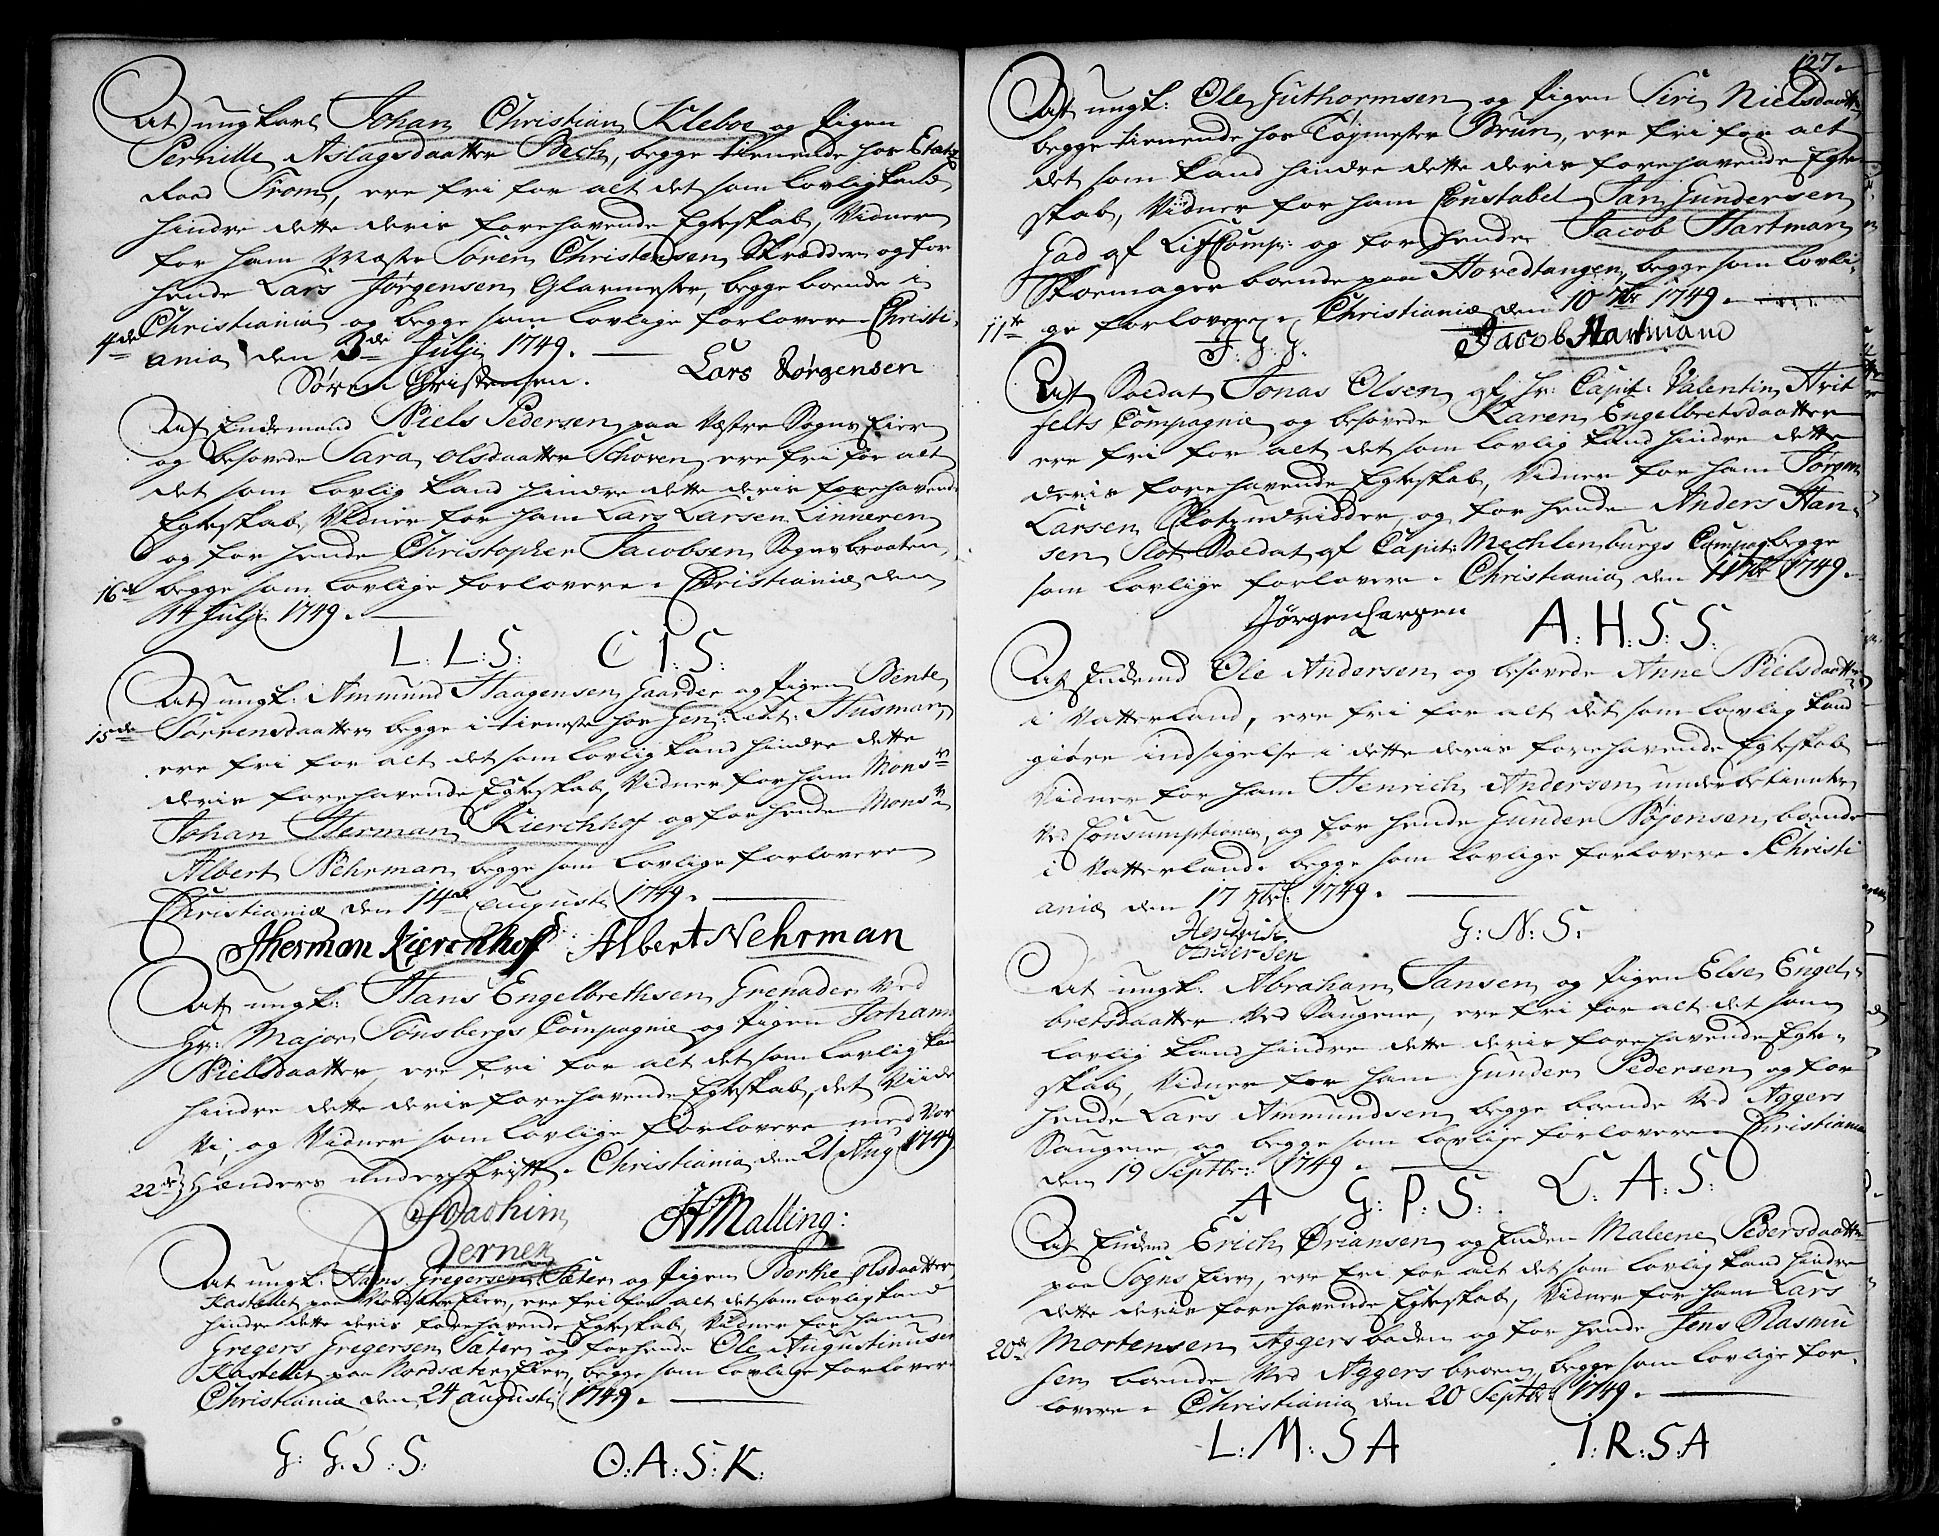 At ungkarl Johan Christian Kleboe og Pigen
Pernille Aslagsdaatter Bech, begge tienende hos Etatz
Raad From, ere fri for alt det som lovlig kand
hindre dette deris forehavende Egteskab, Vidner
for ham Mæster Søren Christensen Skrædder og for
hende Lars Jørgensen Glarmester, begge boende i
Christiania og begge som lovlige forlovere. Christi-
4de ania den 3de Julji 1749.
Søren Christensen. Lars Jørgensen
At Enckemand Niels Pedersen paa Væstre Sogns Eier
og besovede Sara Olsdaatter Schoven, ere fri for alt
det som lovlig kand hindre dette deris forehavende
Egteskab, Vidner for ham Lars Larsen Linneren
og for hende Christopher Jacobsen Sognsbraaten
16de begge som lovlige forlovere. Christiania den
14 Julji 1749.
L: L: S: C I: S:
At ungk: Ammund Haagensen Gaarder og Pigen Bente
15de Sørrensdaatter begge i tieneste hos Gen: Leut: Husman
ere fri for alt det som lovlig kand hindre dette
deris forehavende Egteskab, Vidner for ham Monsr
Johan Herman Kierchhof og for hende Monsr
Albert Nehrman begge som lovlige forlovere
Christianiæ den 14de augusti 1749.
JHerman Kierchhoff Albert Nehrman
At ungk: Hans Engelbrethsen Grenader ved
Hr: Major Tønsbergs Compagnie og Pigen Johann
Nielsdaatter, ere fri for alt det som lovlig kan
hindre dette deris forehavende Egteskab, det Viide
Vi, og Vidner som lovlige forlovere med vor
22de Hænders underskrifft. Christiania den 21 Aug 1749
Joachim HMalling:
Jernek
At ungk: Hans Gregersen Sæter og Pigen Berthe Olsdaatter
Kastellet paa Nordsæter Eier, ere fri for alt det som lovlig kand
hindre dette deris forehavende Egteskab, Vidner for ham
Gregers Gregersen Sæter og for hende Ole Augustinusen
Kastellet paa Nordsæter Eier, begge som lovlige forlover
Christianiæ den 24 augusti 1749.
G: G: S: S: O: A: S: K:
127.
At ungk: Ole Guthormsen og Pigen Siri Nielsdaatt
begge tienende hos Tøymester Brun, ere fri for alt
det som kand hindre dette deris forehavende Egte-
skab, Vidner for ham Constabel Jan Gundersen
Gad af LifComp: og for hende Jacob Hartman
Skoemager boende paa Hovedtangen, begge som lovli-
11te ge forlovere. Christianiæ den 10 7br 1749.
J. G. G. Jacob Hartmand
At Soldat Jonas Olsen af Hr: Capit: Valentin Hvit
felts Compagnie og besovede Karen Engelbretsdaatter
ere fri for alt det som lovlig kand hindre dette
deris forehavende Egteskab, Vidner for ham Jørgen
Larsen Slotzudridder, og for hende Anders Han-
sen Slot Soldat af Capit: Mechlenburgs Compag begge
som lovlige forlovere. Christiania den 11 7br 1749.
Jørgen Larsen A: H: S: S:
At Enckemd Ole Andersen og besovede Anne Nielsdaatter
i Vatterland, ere fri for alt det som lovlig kand
giøre indsigelse i dette deris forehavende Egteskab
Vidner for ham Henrich Andersen underbetient
ved Consumptionen, og for hende Gunder Nøjensen, boende
i Vatterland. begge som lovlige forlovere. Christi
aniæ den 17 7br: 1749.
Hendrik G: N: S:
Andersen
At ungk: Abraham Jansen og Pigen Else Engel-
bretsdaatter ved Saugene, ere fri for alt det som
lovlig kand hindre dette deris forehavende Egte-
skab, Vidner for ham Gunder Pedersen og for
hende Lars Ammundsen begge boende ved Aggers
Saugene og begge som lovlige forlovere Christiania
den 19 Septbr: 1749.
A G: P: S: L: A: S:
At Enckemd Erich Ørjansen og Encken Maleene Pedersdaatter
paa Sogns Eier, ere fri for alt det som lovlig kand hindre
dette deris forehavende Egteskab, Vidner for ham Lars
20de Mortensen Aggersboden og for hende Jens Rasmu
sen boende ved Aggers broen, begge som lovlige for-
lovere. Christiania den 20 Septbr: 1749.
L: M: S A I: R: S: A